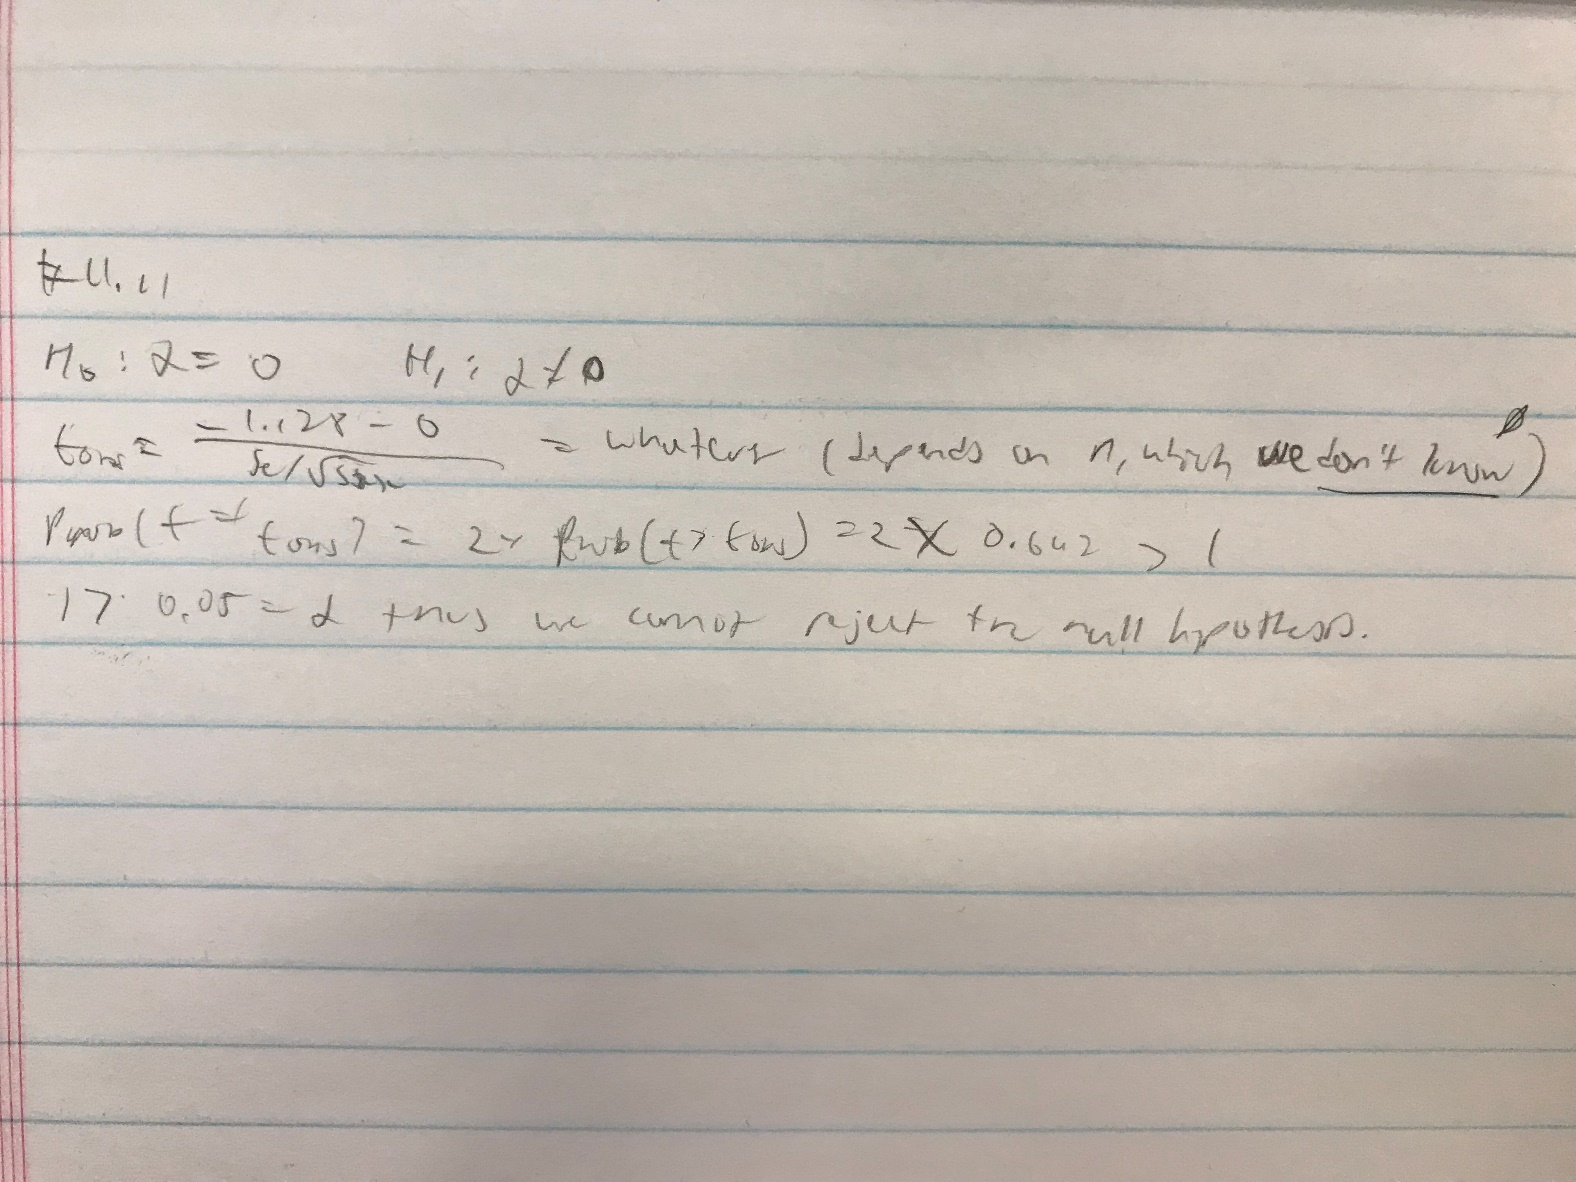 # 11.11
H₀ : α = 0 H₁ : α ≠ 0
tobs = (-1.128 - 0) / (Se/√Sxx) = whatever (depends on n, which we don't know)
Prob(t ≠ tobs) = 2 × Prob(t > tobs) = 2 × 0.642 > 1
1 > 0.05 = α thus we cannot reject the null hypothesis.